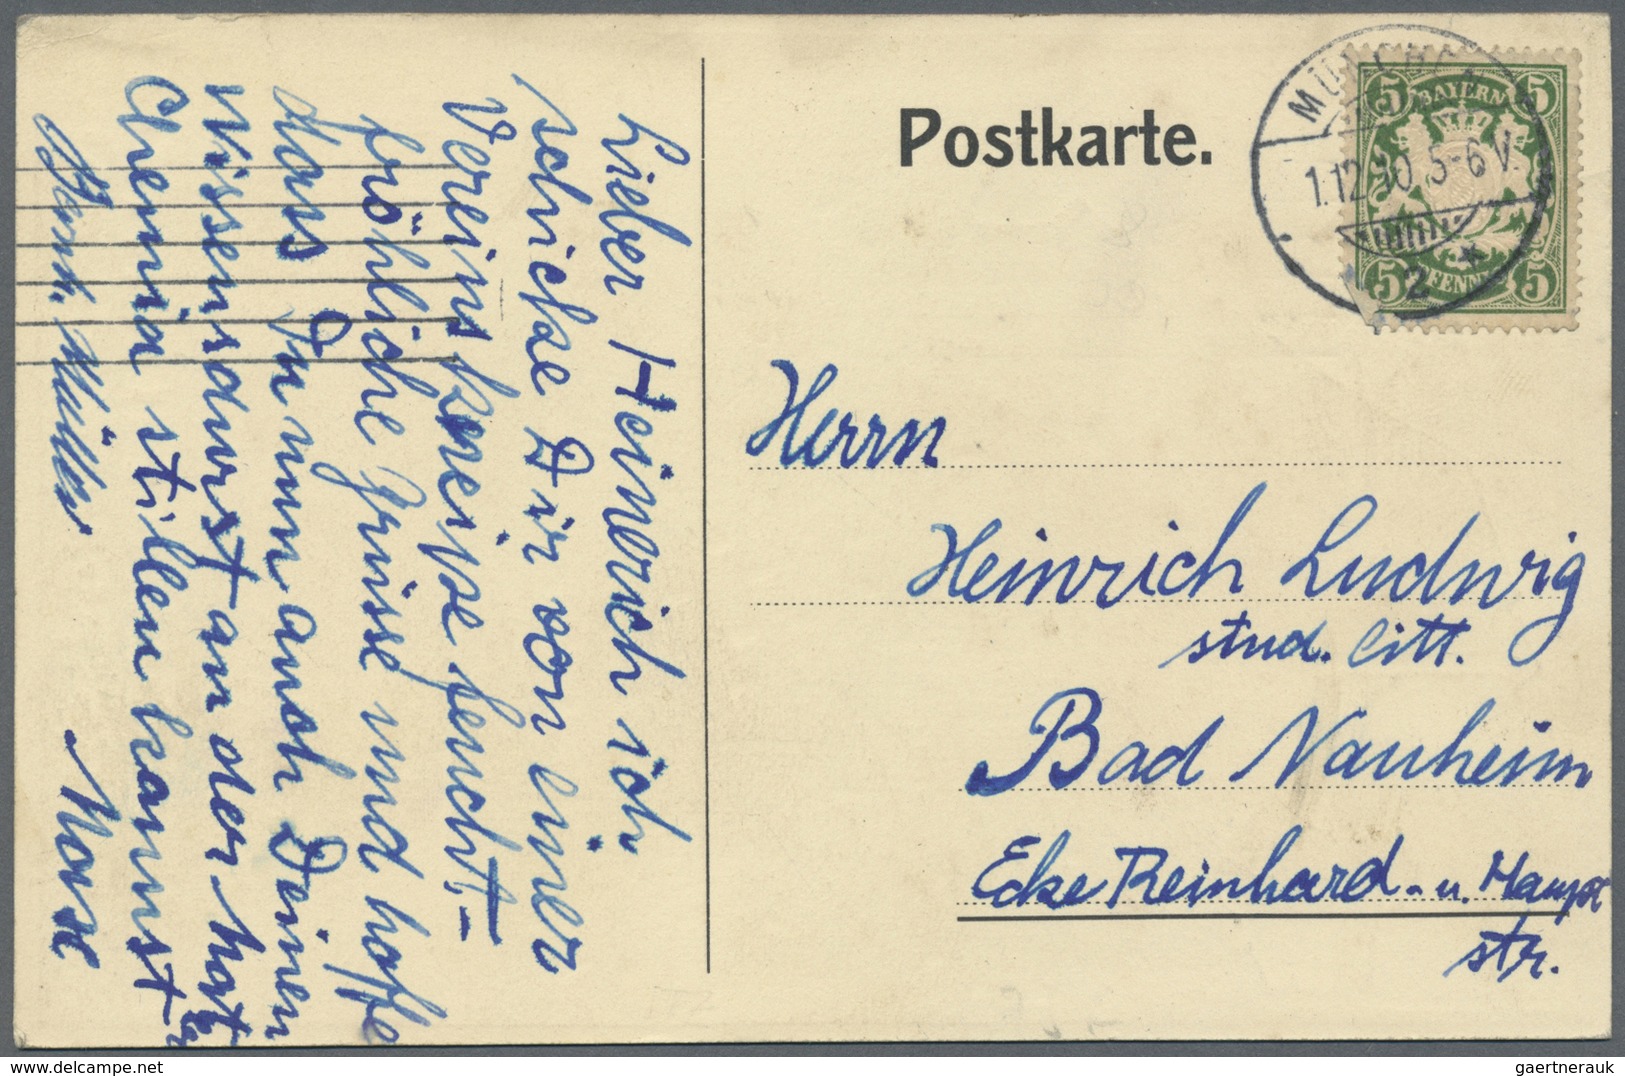 Postkarte.
MÜNCHEN
1.12.10. 5-6 V.
2
5 5
BAYERN
5 PFENNIG 5
Herrn
Heinrich Ludwig
stud. litt.
Bad Nauheim
Ecke Reinhard- u. Haupt
str.
Lieber Heinerich ich
schicke Dir von einer
Vereinskneipe feucht-
fröhliche Grüsse und hoffe
dass Du nun auch Deinen
Wissensdurst an der
Chemia stillen kannst
Max
Müller
gaertnerauk